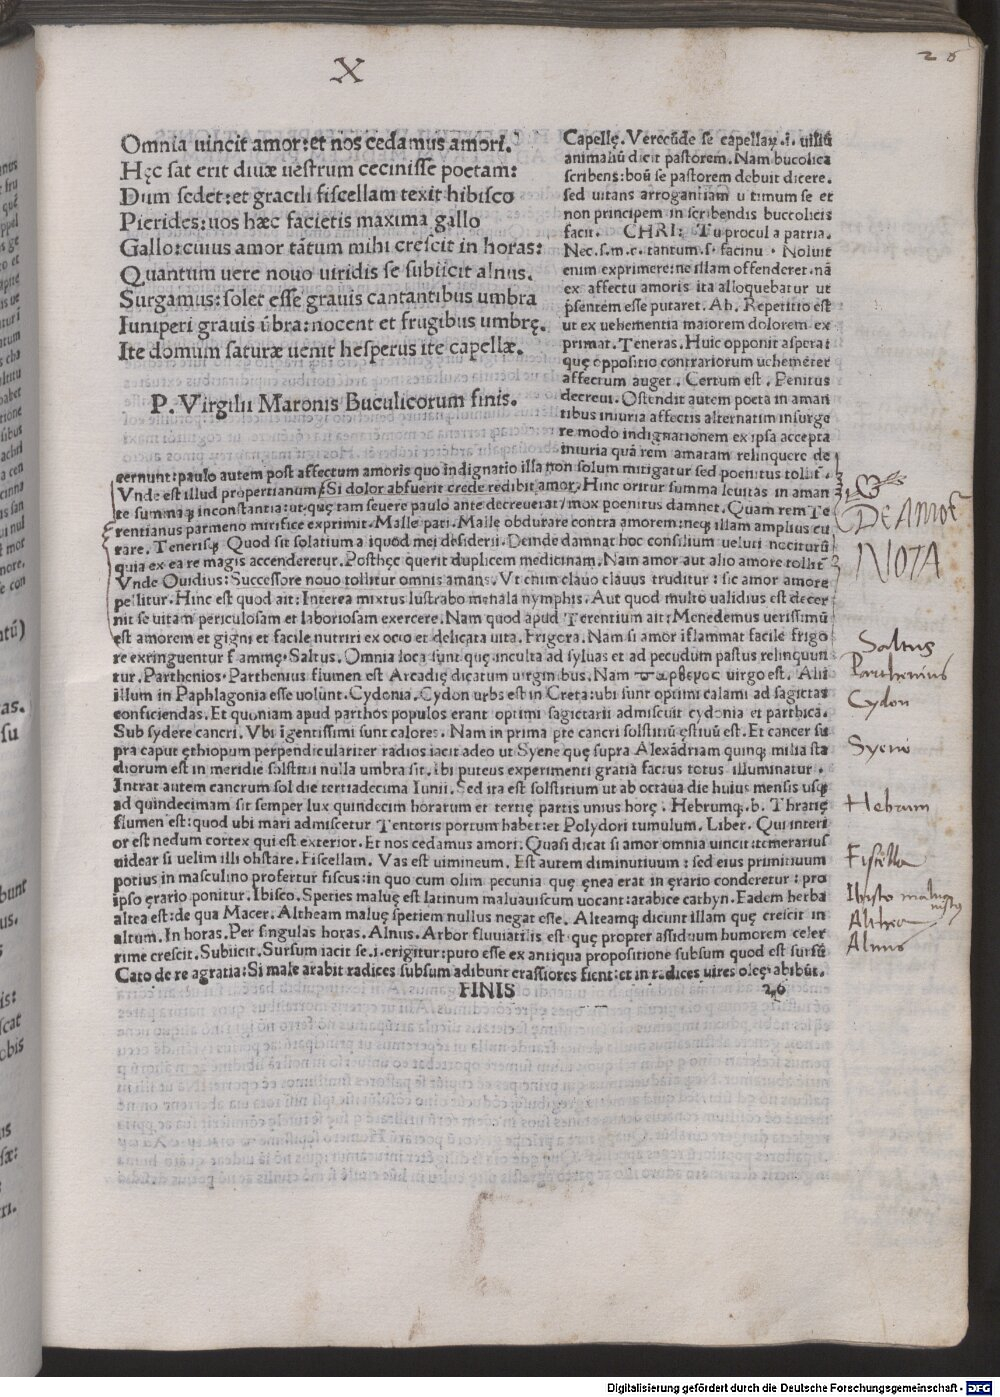 X
26
Omnia uincit amor:et nos cedamus amori.
Hęc sat erit diuæ uestrum cecinisse poetam:
Dum sedet:et gracili fiscellam texit hibisco
Pierides:uos hæc facietis maxima gallo
Gallo:cuius amor tātum mihi crescit in horas:
Quantum uere nouo uiridis se subiicit alnus.
Surgamus:solet esse grauis cantantibus umbra
Iuniperi grauis ūbra:nocent et frugibus umbrę.
Ite domum saturæ uenit hesperus ite capellæ.
P. Virgilii Maronis Buculicorum finis.
Capellę. Verecūde se capellaꝝ.i. uiliū
animaliū dicit pastorem. Nam bucolica
scribens:boū se pastorem debuit dicere.
sed uitans arrogantiam ultimum se et
non principem in scribendis buccolicis
facit. CHRI: Tu procul a patria.
Nec.s.m.c. tantum.s. facinu. Noluit
enim exprimere:ne illam offenderet.nā
ex affectu amoris ita alloquebatur ut
p̄sentem esse putaret. Ah. Repetitio est
ut ex uehementia maiorem dolorem ex
primat. Teneras. Huic opponit aspera:
quę oppositio contrariorum uehemēter
affectum auget. Certum est. Penitus
decreui. Ostendit autem poeta in aman
tibus iniuria affectis alternatim insurge
re modo indignationem ex ipsa accepta
iniuria quā rem amatam relinquere de
cernunt:paulo autem post affectum amoris quo indignatio illa non solum mitigatur sed poenitus tollit.
Vnde est illud propertianum/Si dolor abfuerit crede redibit amor. Hinc oritur summa leuitas in aman
te summaq; inconstantia:ut quę tam seuere paulo ante decreuerat/mox poenitus damnet. Quam rem Te
rentianus parmeno mirifice exprimit. Malle pati. Malle obdurare contra amorem:neq; illam amplius cu
rare. Tenerisq; Quod sit solatium aliquod mei desiderii. Deinde damnat hoc consilium ueluti nociturū
quia ex ea re magis accenderetur. Posthęc querit duplicem medicinam. Nam amor aut alio amore tollit
Vnde Ouidius: Successore nouo tollitur omnis amans. Vt enim clauo clauus truditur: sic amor amore
pellitur. Hinc est quod ait: Interea mixtus lustrabo menala nymphis. Aut quod multo ualidius est decer
nit se uitam periculosam et laboriosam exercere. Nam quod apud Terentium ait: Menedemus uerissimū
est amorem et gigni et facile nutriri ex ocio et delicata uita. Frigora. Nam si amor īflammat facile frigo
re extinguentur flammę. Saltus. Omnia loca sunt quę inculta ad syluas et ad pecudum pastus relinquun
tur. Parthenios. Parthenius flumen est Arcadię dicatum uirginibus. Nam παρθενος uirgo est. Alii
illum in Paphlagonia esse uolunt. Cydonia. Cydon urbs est in Creta:ubi sunt optimi calami ad sagittas
conficiendas. Et quoniam apud parthos populos erant optimi sagittarii admiscuit cydonia et parthica.
Sub sydere cancri. Vbi īgentissimi sunt calores. Nam in prima pte cancri solstitiū ęstiuū est. Et cancer su
pra caput ęthiopum perpendiculariter radios iacit adeo ut Syene quę supra Alexādriam quinq; milia sta
diorum est in meridie solstitii nulla umbra sit. ibi puteus experimenti gratia factus totus illuminatur.
Intrat autem cancrum sol die tertiadecima Iunii. Sed ita est solstitium ut ab octaua die huius mensis usq;
ad quindecimam sit semper lux quindecim horarum et tertię partis unius horę. Hebrumq.b. Thracię
flumen est:quod ubi mari admiscetur Tentoris portum habet:et Polydori tumulum. Liber. Qui interi
or est nedum cortex qui est exterior. Et nos cedamus amori. Quasi dicat si amor omnia uincit:temerarius
uidear si uelim illi obstare. Fiscellam. Vas est uimineum. Est autem diminutiuum: sed eius primitiuum
potius in masculino profertur fiscus:in quo cum olim pecunia quę ęnea erat in ęrario conderetur: pro
ipso ęrario ponitur. Ibisco. Species maluę est latinum maluauiscum uocant:arabice cathyn. Eadem herba
altea est:de qua Macer. Altheam maluę speciem nullus negat esse. Alteamq; dicunt illam quę crescit in
altum. In horas. Per singulas horas. Alnus. Arbor fluuiatilis est quę propter assiduum humorem celer
rime crescit. Subiicit. Sursum iacit se.i.erigitur:puto esse ex antiqua propositione subsum quod est sursū
Cato de re agraria: Si male arabit radices subsum adibunt crassiores fient:et in radices uires oleę abibūt.
FINIS
26
DE AMOR
NOTA
Saltus
Parthenius
Cydon
Syene
Hebrum
Fiscella
Althea
Alnus
Digitalisierung gefördert durch die Deutsche Forschungsgemeinschaft - DFG